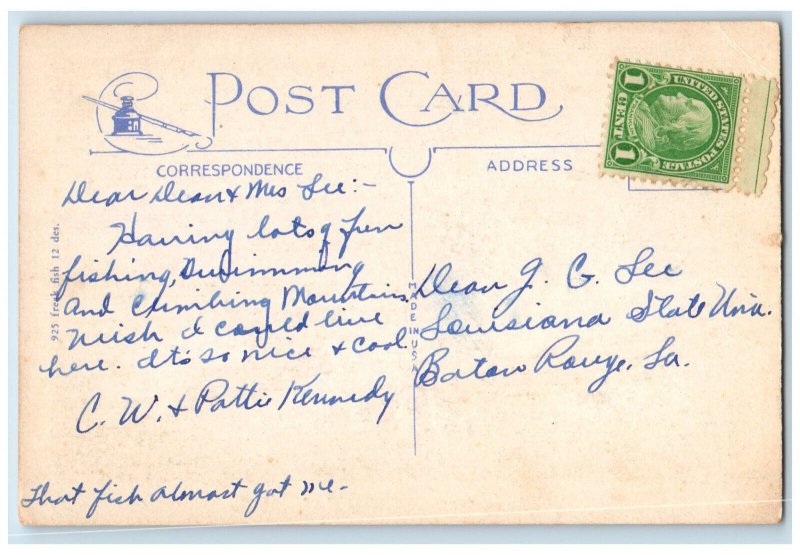 POST CARD
CORRESPONDENCE
ADDRESS
UNITED STATES POSTAGE
1 CENT 1
Dear Dean & Mrs Lee:-
Having lots of fun
fishing, Swimming
and Climbing Mountains.
Wish I could live
here. It's so nice & cool.
C. W. & Pattie Kennedy
That fish almost got me-
Dean J. G. Lee
Louisiana State Univ.
Baton Rouge, La.
925 freak fish 12 des.
MADE IN USA